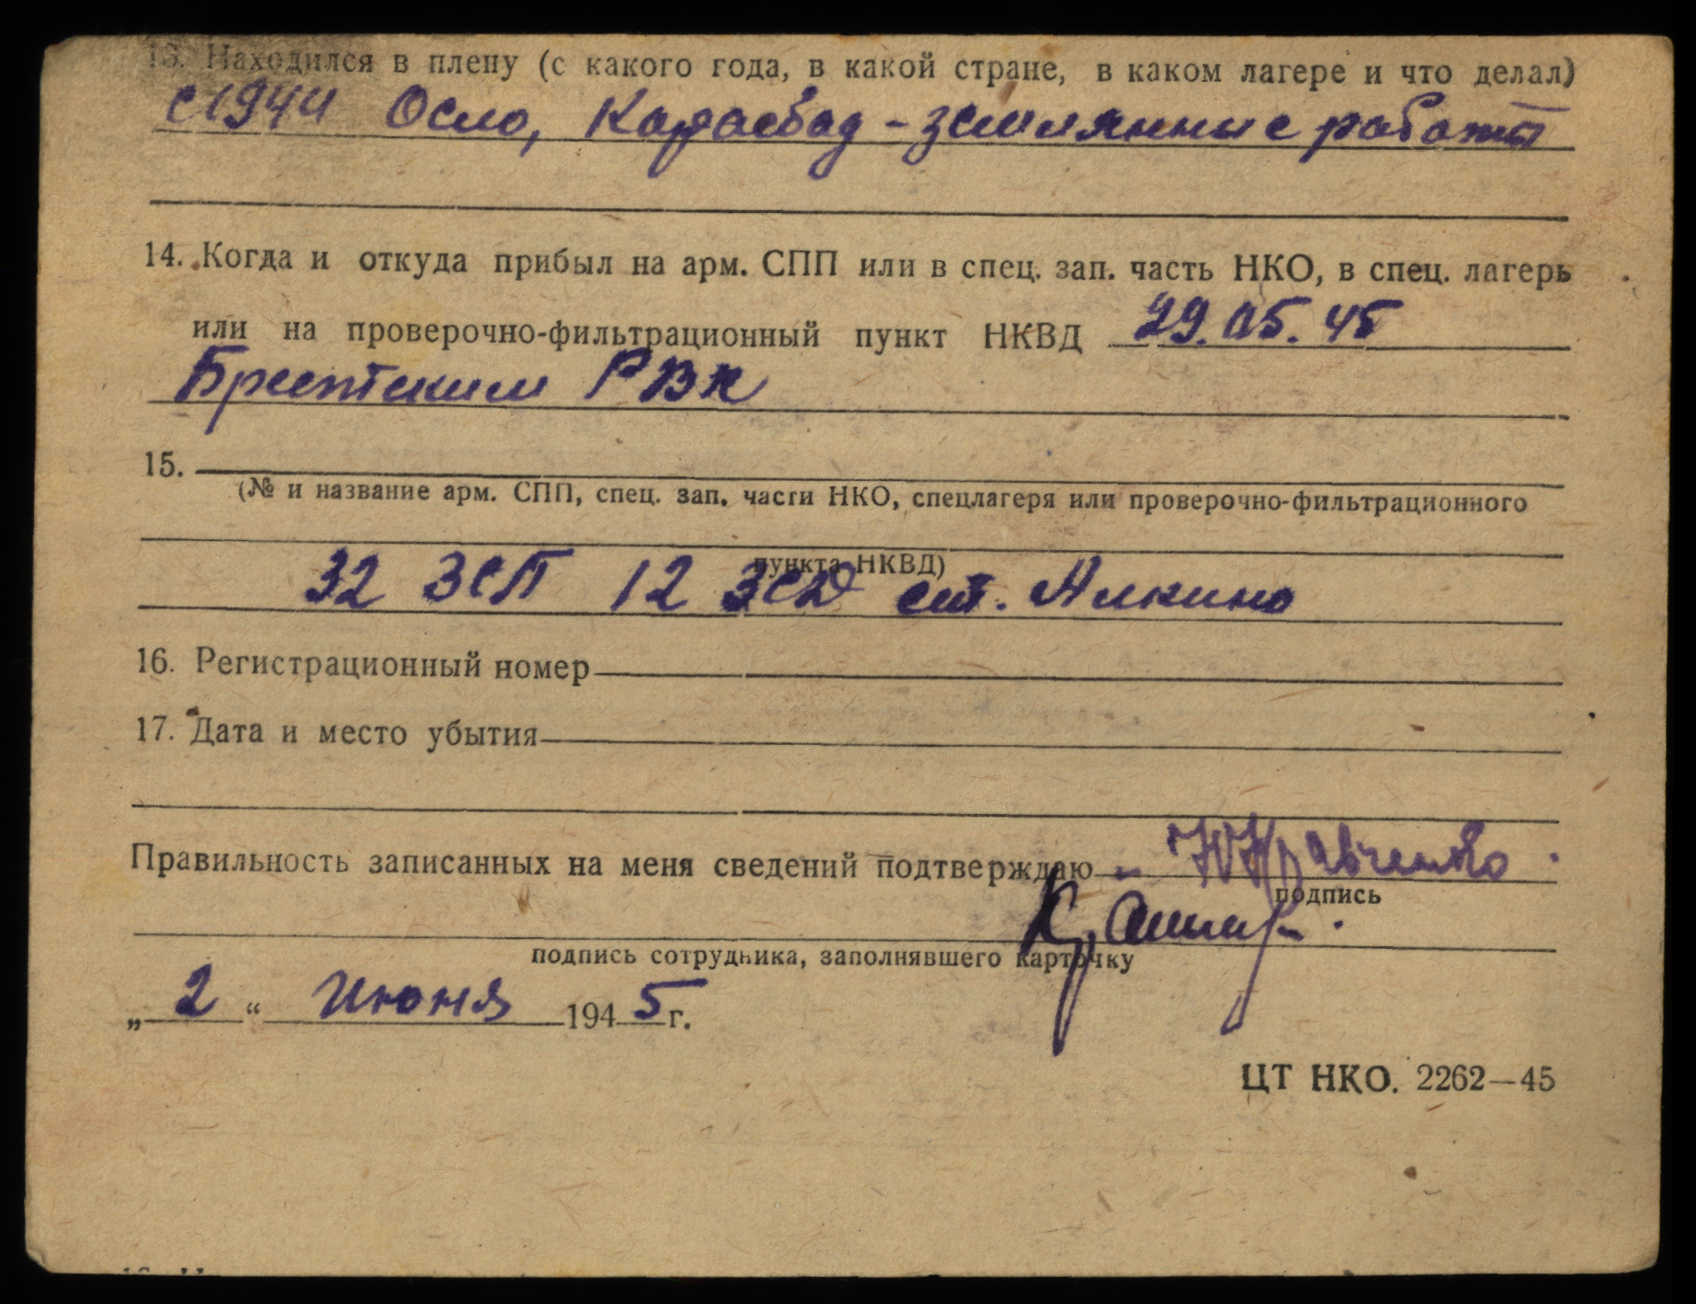 13. Находился в плену (с какого года, в какой стране, в каком лагере и что делал)
с 1944 Осло, Карлсбад - землянные работы
14. Когда и откуда прибыл на арм. СПП или в спец. зап. часть НКО, в спец. лагерь
или на проверочно-фильтрационный пункт НКВД 29.05.45
Брестским РВК
15.
(№ и название арм. СПП, спец. зап. части НКО, спецлагеря или проверочно-фильтрационного
пункта НКВД)
32 ЗСП 12 ЗСД ст. Алкино
16. Регистрационный номер
17. Дата и место убытия
Правильность записанных на меня сведений подтверждаю Кравченко
подпись
подпись сотрудника, заполнявшего карточку
„ 2 “ Июня 1945 г.
ЦТ НКО. 2262—45